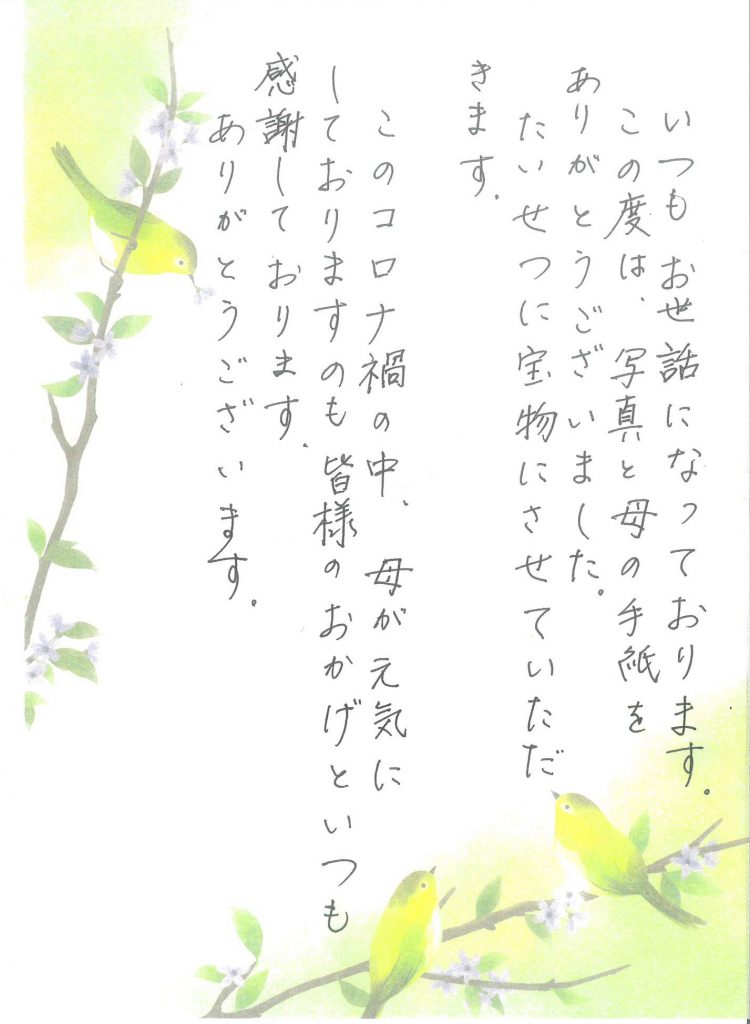 いつもお世話になっております。
この度は、写真と母の手紙を
ありがとうございました。
たいせつに宝物にさせていただ
きます。
このコロナ禍の中、母が元気に
しておりますのも皆様のおかげといつも
感謝しております。
ありがとうございます。